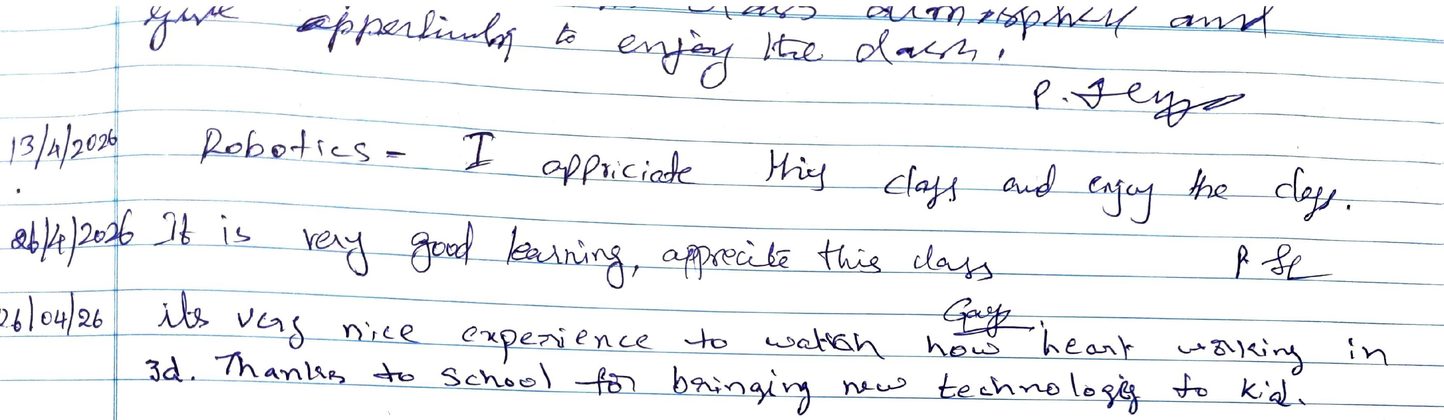 give appertinity to enjoy the
and
P. Jey
13/4/2026 Robotics - I appriciate this class and enjoy the class.
26/4/2026 It is very good learning, apprecite this class
26/04/26 its very nice experience to watch how heart working in
3d. Thanks to school for bringing new technologis to kid.